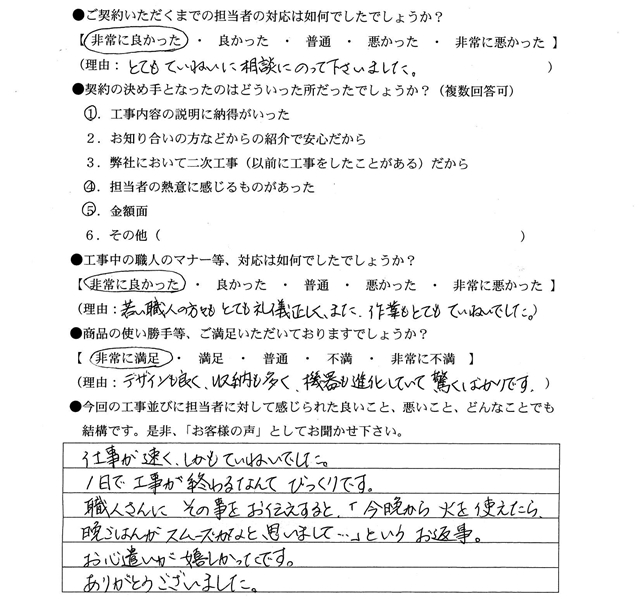 ●ご契約いただくまでの担当者の対応は如何でしたでしょうか？
【 非常に良かった ・ 良かった ・ 普通 ・ 悪かった ・ 非常に悪かった 】
（理由： とてもていねいに相談にのって下さいました。 ）
●契約の決め手となったのはどういった所だったでしょうか？（複数回答可）
①．工事内容の説明に納得がいった
２．お知り合いの方などからの紹介で安心だから
３．弊社において二次工事（以前に工事をしたことがある）だから
④．担当者の熱意に感じるものがあった
⑤．金額面
６．その他（ ）
●工事中の職人のマナー等、対応は如何でしたでしょうか？
【 非常に良かった ・ 良かった ・ 普通 ・ 悪かった ・ 非常に悪かった 】
（理由： 若い職人の方々もとても礼儀正しく、また、作業もとてもていねいでした。）
●商品の使い勝手等、ご満足いただいておりますでしょうか？
【 非常に満足 ・ 満足 ・ 普通 ・ 不満 ・ 非常に不満 】
（理由： デザインも良く、収納も多く、機器も進化していて驚くばかりです。）
●今回の工事並びに担当者に対して感じられた良いこと、悪いこと、どんなことでも
結構です。是非、「お客様の声」としてお聞かせ下さい。
仕事が速く、しかもていねいでした。
１日で工事が終わるなんてびっくりです。
職人さんにその事をお伝えすると、「今晩から火を使えたら、
晩ごはんがスムーズかなと思いまして…」というお返事。
お心遣いが嬉しかったです。
ありがとうございました。